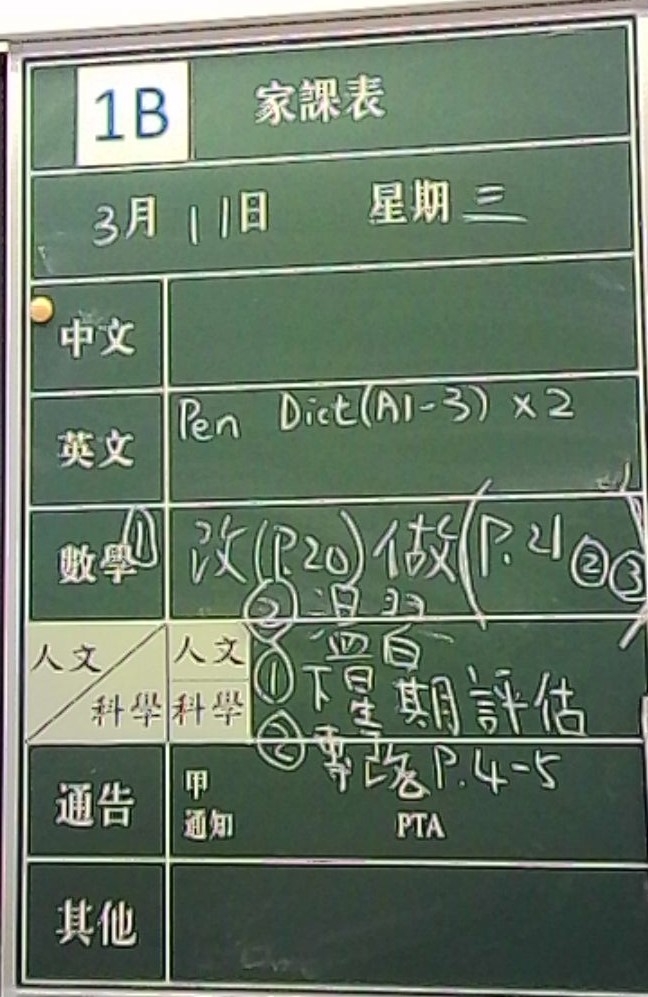 1B 家課表
3月11日 星期三
中文
英文 Pen Dict(A1-3) x2
數學 ① 改(P.20) 做(P.21 ②③)
② 溫習
人文 科學 人文 科學
① 下星期評估
② 專改P.4-5
通告 甲 通知 PTA
其他